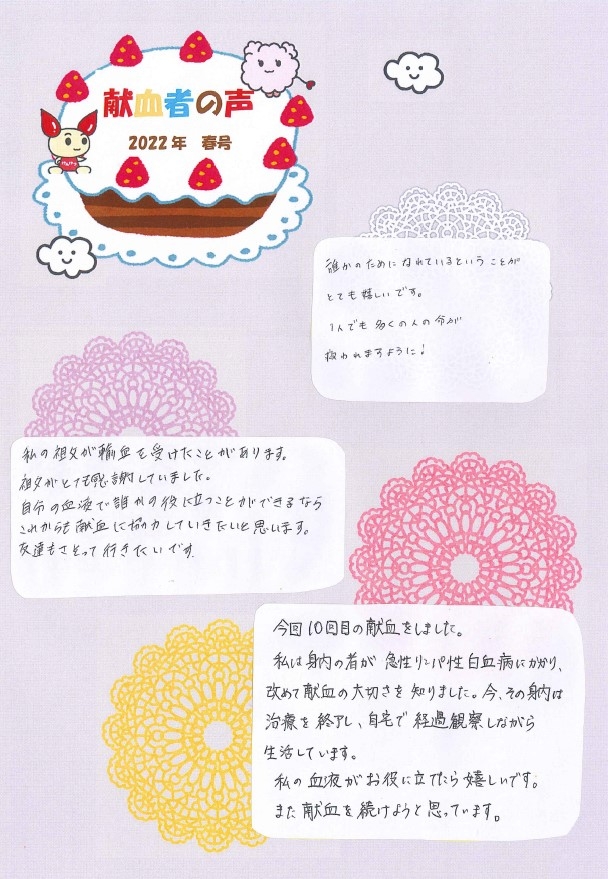 献血者の声
2022年 春号
誰かのためになれているということが
とても嬉しいです。
1人でも多くの人の命が
救われますように!
私の祖父が輸血を受けたことがあります。
祖父がとても感謝していました。
自分の血液で誰かの役に立つことができるなら
これからも献血に協力していきたいと思います。
友達もさそって行きたいです。
今回10回目の献血をしました。
私は身内の者が急性リンパ性白血病にかかり、
改めて献血の大切さを知りました。今、その身内は
治療を終了し、自宅で経過観察しながら
生活しています。
私の血液がお役に立てたら嬉しいです。
また献血を続けようと思っています。